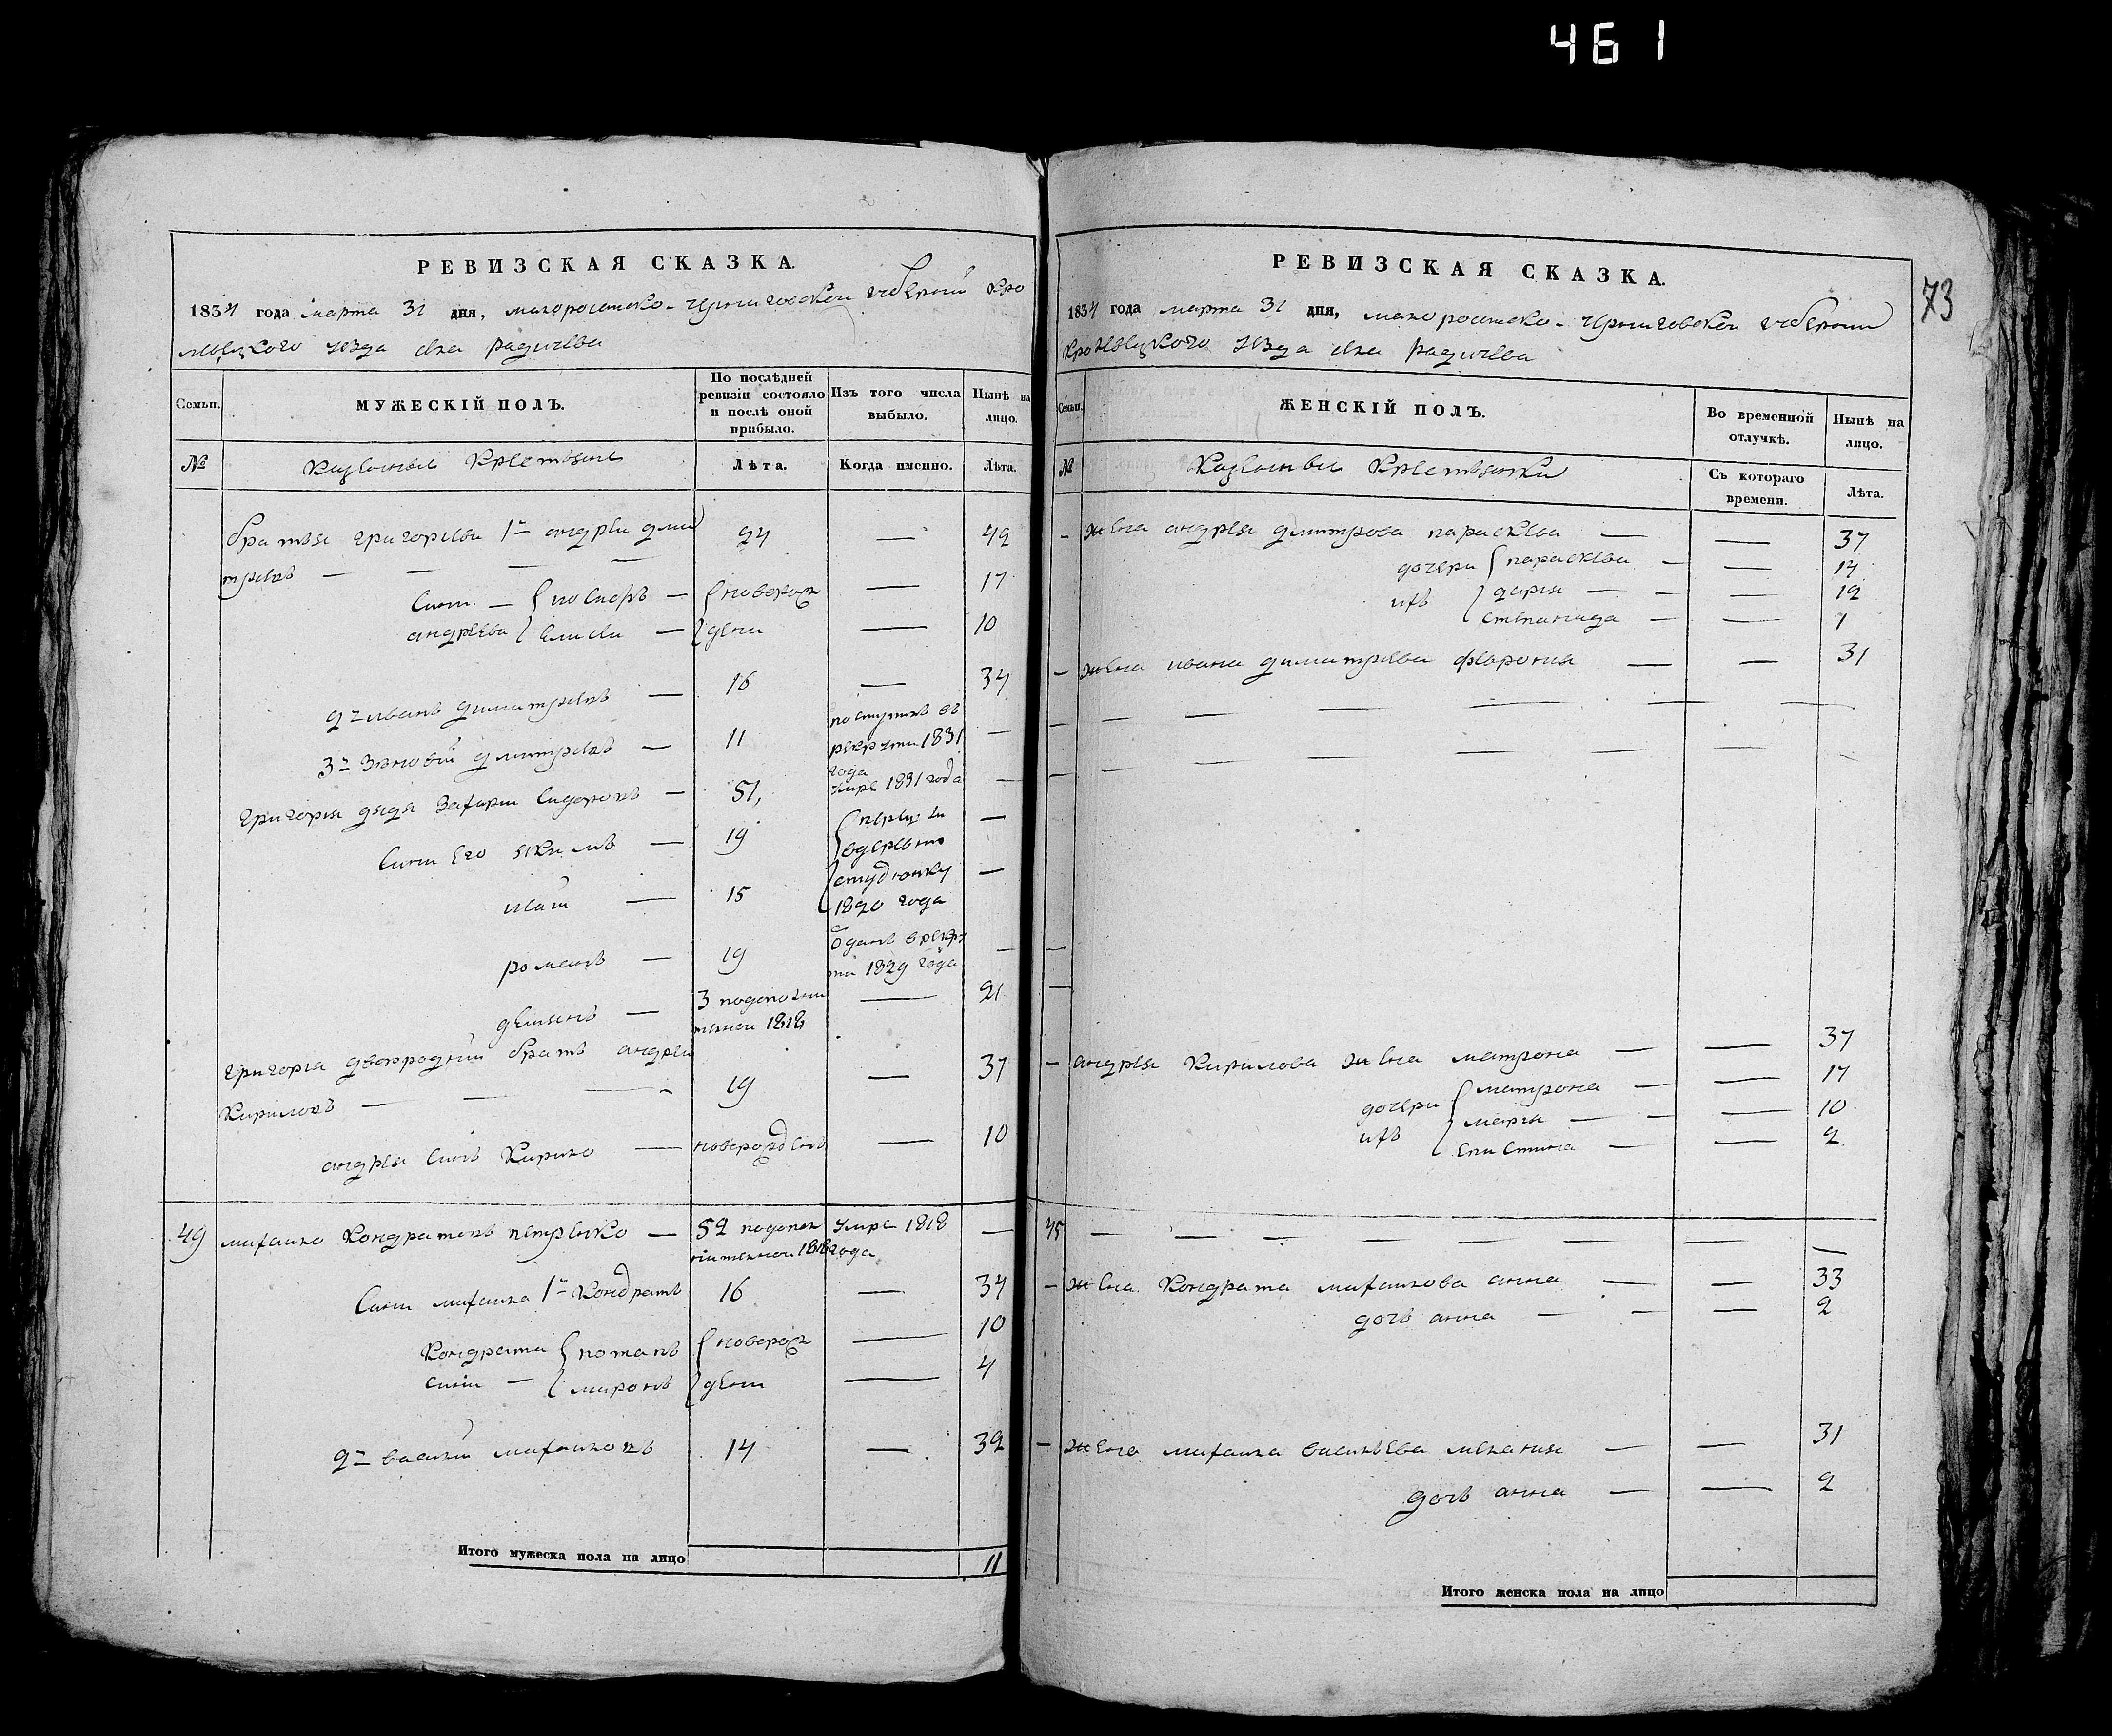 461
РЕВИЗСКАЯ СКАЗКА.
1834 года марта 31 дня, малоросійско-Черниговской губерніи Кро
левецкого уезда села радичева
Семьи.
МУЖЕСКІЙ ПОЛЪ.
По послѣдней ревизіи состояло и послѣ оной прибыло.
Изъ того числа выбыло.
Нынѣ на лицо.
№
Казенные
Лѣта.
Когда именно.
Лѣта.
братья григорьевы 1й андрей дми
тріевъ — — — — 24 — 42
Сыны — новорож — 17
андреевы елисей — дены — 10
2й иванъ димитріевъ — 16 — 34
3й Зѣновій дмитріевъ — 11 поступилъ въ рекруты 1831 года —
григорья дядя Захарій Сидоровъ — 51, умре 1831 года —
Сыны его якимъ — 19 —
иванъ — 15 —
1820 года
романъ — 19 отданъ в рекру
ты 1829 года —
демянъ — 3 подополни
тельной 1818 — 21
григорья двоюродный братъ андрей
Кириловъ — — — 19 — 37
андрея Сынъ Кирило — новорожденъ — 10
49 михайло Кондратовъ петренко — 52 подопол
нительной 1818 умре 1818 года —
Сыны михайла 1й Кондратъ 16 — 34
Кондрата потапъ новорож — 10
сыны — миронъ дены — 4
2й василій михайловъ 14 — 32
Итого мужеска пола на лицо 11
73
РЕВИЗСКАЯ СКАЗКА.
1834 года марта 31 дня, малоросійско-Черниговской губерніи
Кролевецкого уезда села радичева
Семьи.
ЖЕНСКІЙ ПОЛЪ.
Во временной отлучкѣ.
Нынѣ на лицо.
№
Казенные
Съ котораго времени.
Лѣта.
— жена андрея димитрова парасковья — — 37
дочери парасковья — — 14
ихъ дарья — — 12
степанида — — 1
— жена ивана димитріева февронія — — 31
— андрея Кирилова жена матрона — — 37
дочери матрона — — 17
ихъ марья — — 10
епистина — — 2
45 — — — — — — — —
— жена Кондрата михайлова анна — — 33
дочь анна — — 2
— жена михайла васильева меланія — — 31
дочь анна — — 2
Итого женска пола на лицо